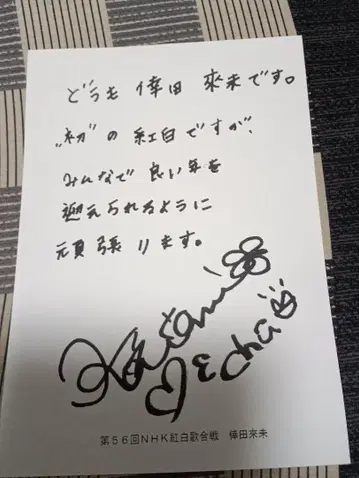 どうも 倖田 來未です。
"初"の紅白ですが、
みんなで 良い年を
迎えられるように
頑張ります。
第56回NHK紅白歌合戦 倖田來未